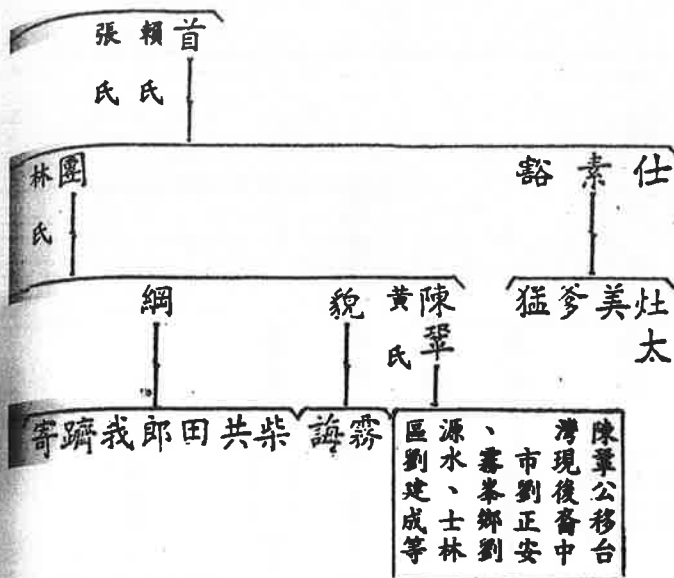 首
賴氏
張氏
仕
素
豁
團
林氏
灶太
美
爹
猛
陳鞏
黃氏
貌
綱
陳鞏公移台
灣現後裔中
市劉正安
、霧峯鄉劉
源水、士林
區劉建成等
霧
誨
柴
共
田
郎
我
躋
寄